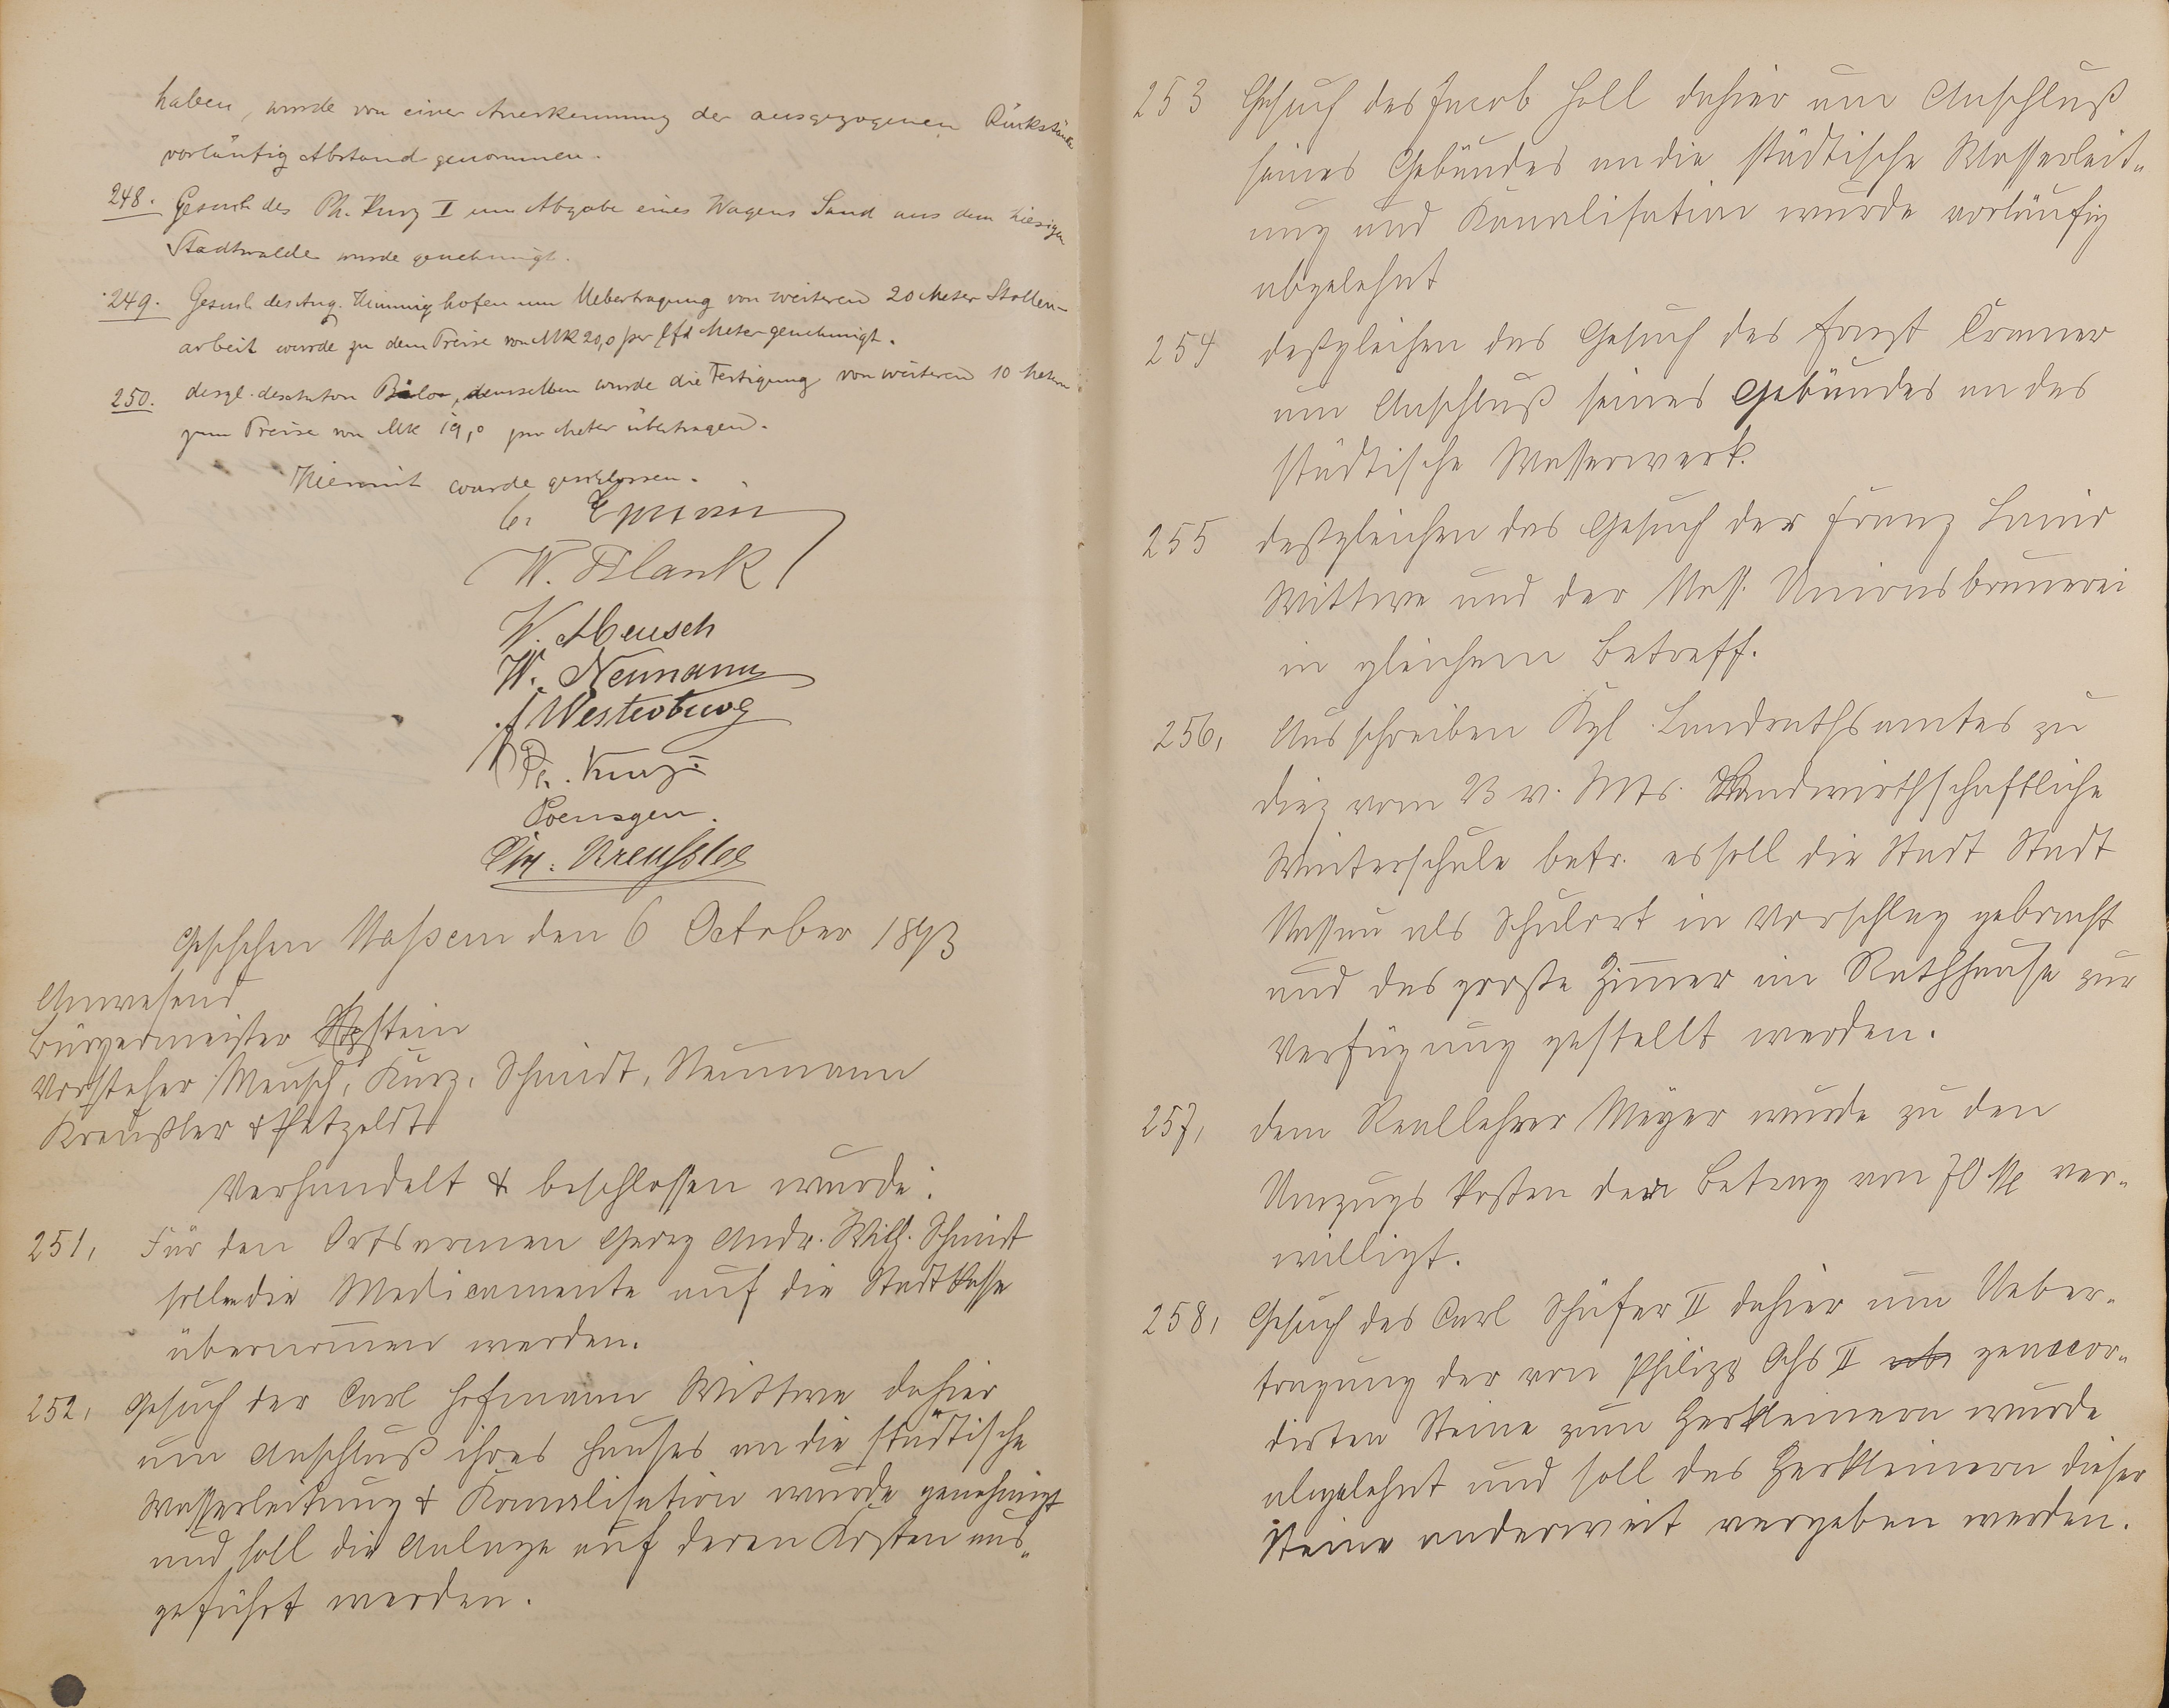 haben, wurde von einer Anerkennung der ausgezogenen Rückstände
vorläufig Abstand genommen.
248. Gesuch des Ph. Kurz I um Abgabe eines Wagens Sand aus dem hiesigen
Stadtwalde wurde genehmigt.
249. Gesuch des Aug. Himmighofen um Uebertragung von weiteren 20 Meter Stollen-
arbeit wurde zu dem Preise von Mk 20,0 per lfd Meter genehmigt.
250. desgl. des Anton demselben wurde die Fertigung von weiteren 10 Metern
zum Preise von Mk 19,0 pro Meter übertragen.
Hiermit wurde geschlossen.
W. Blank
W. Meusch
W. Neumann
Westerburg
Ph. Kurz
Poensgen.
Chr. Kreussler
Geschehen Nassau den 6 October 1893
Anwesend
Bürgermeister Epstein
Vorsteher Meusch, Kurz, Schmidt, Neumann
Kreußler & Petzoldt
Verhandelt & beschlossen wurde:
251, Für den Ortsarmen Georg Andr. Wilh. Schmidt
sollen die Medicamente auf die Stadtkasse
übernom̅en werden.
252, Gesuch der Carl Hofmann Wittwe dahier
um Anschluß ihres Hauses an die städtische
Wasserleitung & Kanalisation wurde genehmigt
und soll die Anlage auf deren Kosten aus-
geführt werden.
253 Gesuch des Jacob Holl dahier um Anschluß
seines Gebäudes an die städtische Wasserleit-
ung und Kanalisation wurde vorläufig
abgelehnt
254 deßgleichen das Gesuch des Cramer
um Anschluß seines Gebäudes an das
städtische Wasserwerk.
255 deßgleichen das Gesuch der Franz
Wittwe und der Nass. Unionsbrauerei
in gleichem Betreff.
256, Ausschreiben Kgl. Landrathsamtes zu
Diez vom 23 v. Mts. Landwirthschaftliche
Winterschule betr. es soll die Stadt Stadt
Nassau als Schulort in Vorschlag gebracht
und das große Zim̅er im Rathhause zur
Verfügung gestellt werden.
257, dem Reallehrer Meyer wurde zu den
Umzugskosten der Betrag von 70 M ver-
willigt.
258, Gesuch des Carl Schäfer II dahier um Ueber-
tragung der von Philipp Ochs II geaccor-
dirten Steine zum Zerkleinern wurde
abgelehnt und soll das Zerkleinern dieser
Steine anderweit vergeben werden.